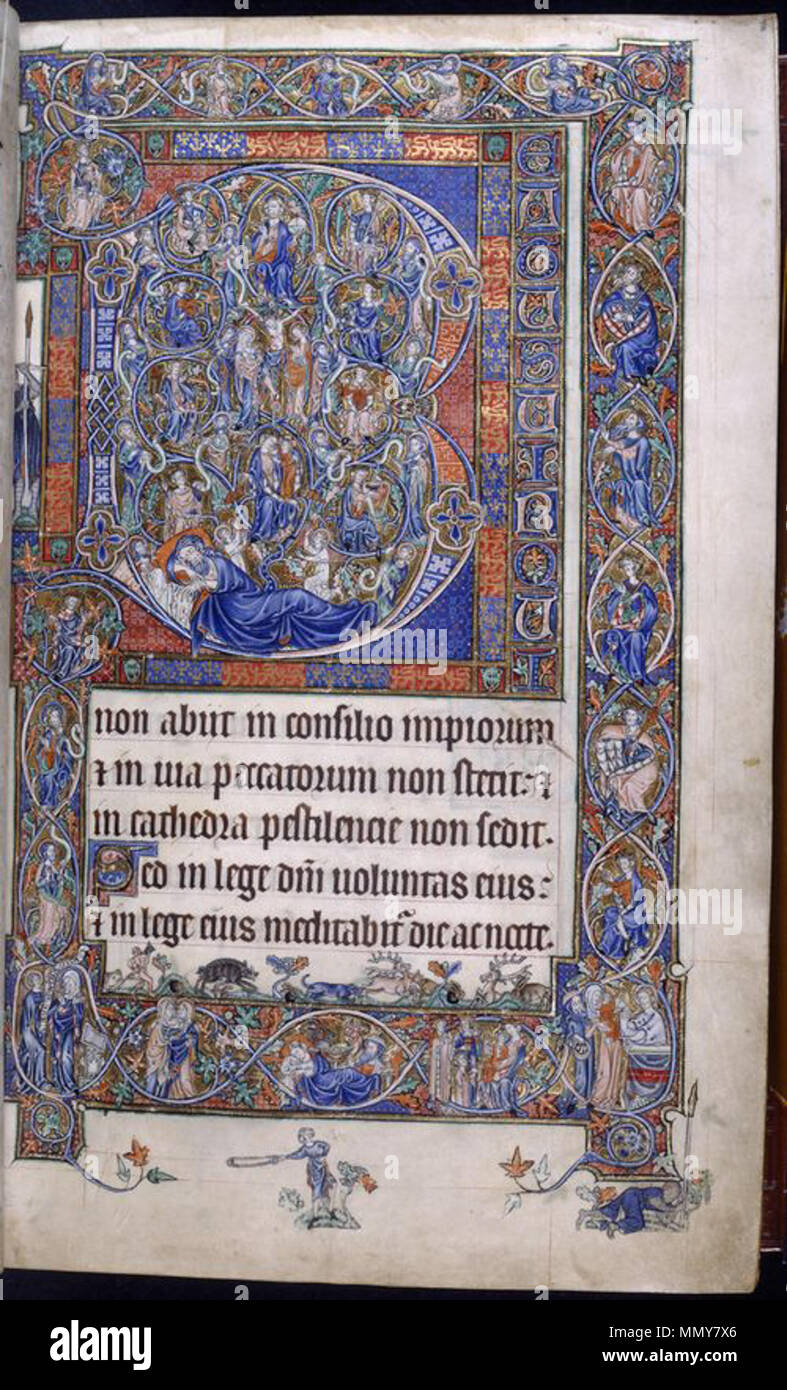 B
EATUSUIRQUI
non abiit in consilio impiorum
⁊ in uia peccatorum non stetit: ⁊
in cathedra pestilencie non sedit.
Sed in lege dñi uoluntas eius:
⁊ in lege eius meditabit᷑ die ac nocte.
alamy
alamy
Image ID: MMY7X6
www.alamy.com